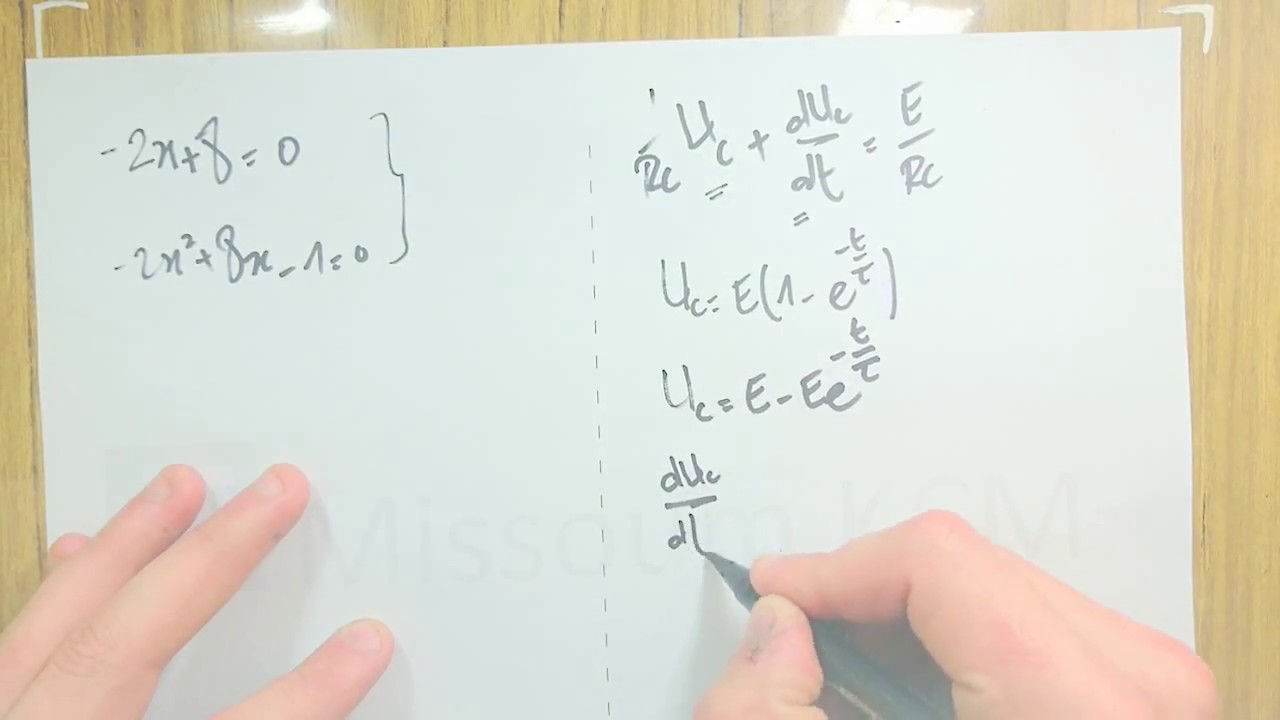 -2x+8=0
-2x²+8x-1=0
1/RC Uc + dUc/dt = E/RC
Uc = E(1-e^(-t/τ))
Uc = E-Ee^(-t/τ)
dUc/dt
Missoum